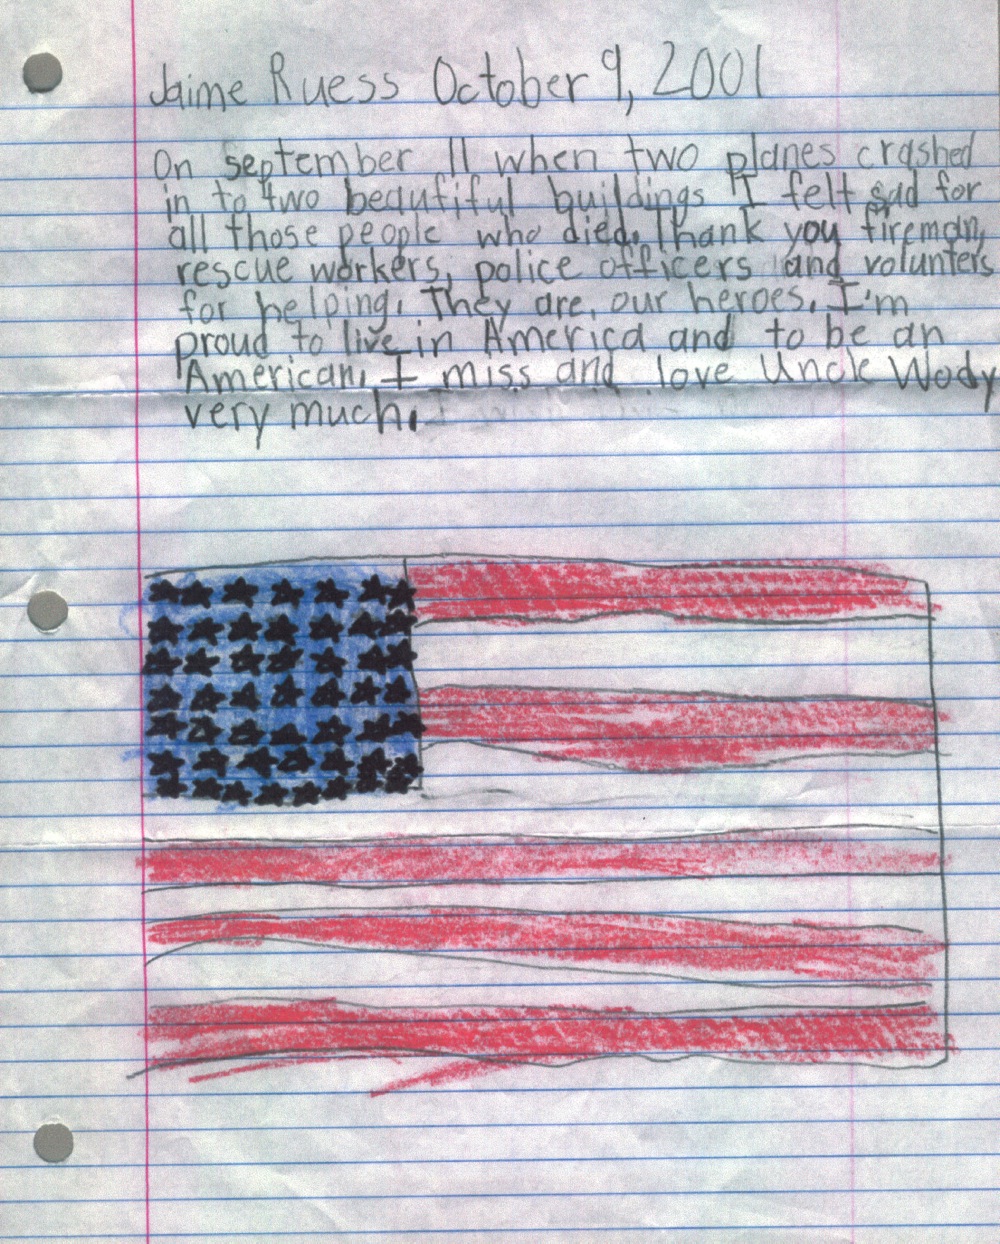 Jaime Ruess October 9, 2001
On september 11 when two planes crashed
in to two beautiful buildings I felt sad for
all those people who died. Thank you fireman,
rescue workers, police officers and volunters
for helping. They are our heroes. I'm
proud to live in America and to be an
American. I miss and love Uncle Wody
very much.